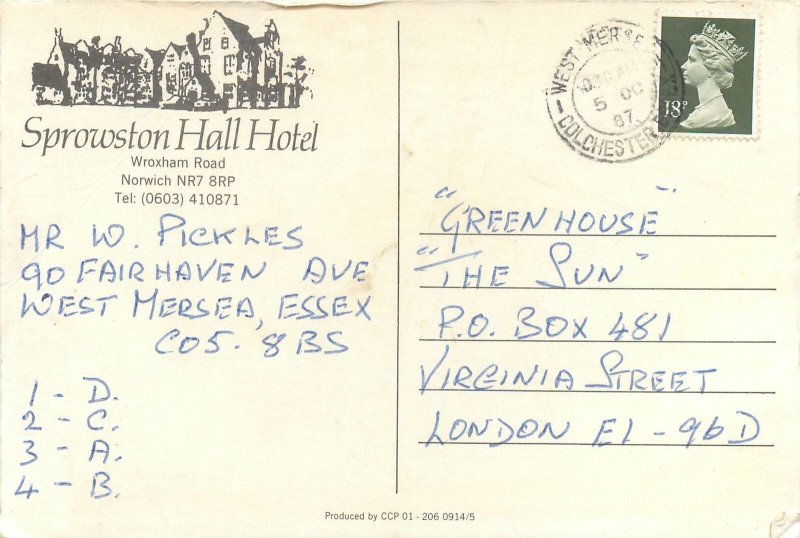 Sprowston Hall Hotel
Wroxham Road
Norwich NR7 8RP
Tel: (0603) 410871
MR W. PICKLES
90 FAIRHAVEN AVE
WEST MERSEA, ESSEX
CO5. 8BS
1 - D.
2 - C.
3 - A.
4 - B.
WEST MERSEA
5 OC
87
COLCHESTER
18P
"GREENHOUSE"
"THE SUN"
P.O. BOX 481
VIRGINIA STREET
LONDON E1 - 96D
Produced by CCP 01 - 206 0914/5